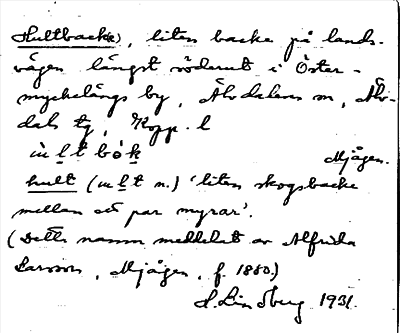 Hultbacke), liten backe på lands-
vägen längst söderut i Öster-
myckelängs by, Älvdalens sn, Älv-
dals tg, Kopp. l
ù l t b ó k Mjågen.
hult (u l t n.) 'liten skogsbacke
mellan ett par myrar'.
(Detta namn meddelat av Alfrida
Larsson, Mjågen, f. 1880.)
S. Lindberg 1931.